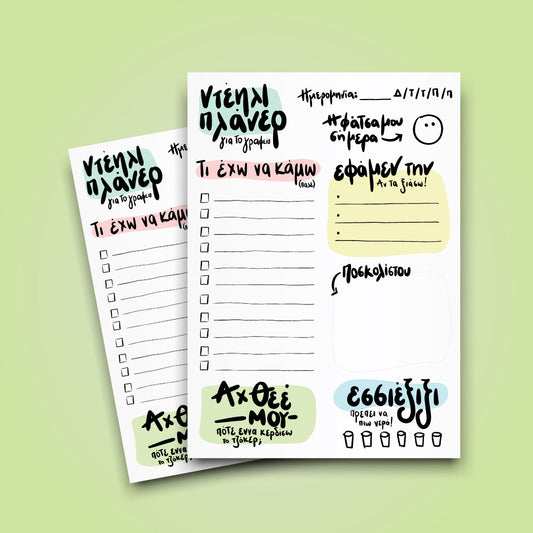 Ντέηλι
πλάνερ
για το
Ημερομηνία: _____ Δ/Τ/Τ/Π/Π
Η φάτσα μου
σήμερα
Τι έχω να κάμω
(πάλε)
εφάμεν την
Αν τα ξιάσω!
Ποσκολίστου
Αχ Θεέ
—ΜΟΥ—
πότε εννα κερδίσω
το τζόκερ;
εσσιέξιξι
πρέπει να
πιω νερό!
Ντέηλι
πλάνερ
για το
Ημε
Τι έχω να κάμω
Αχ Θεέ
—ΜΟΥ
πότε εννα κε
το τζόκερ;